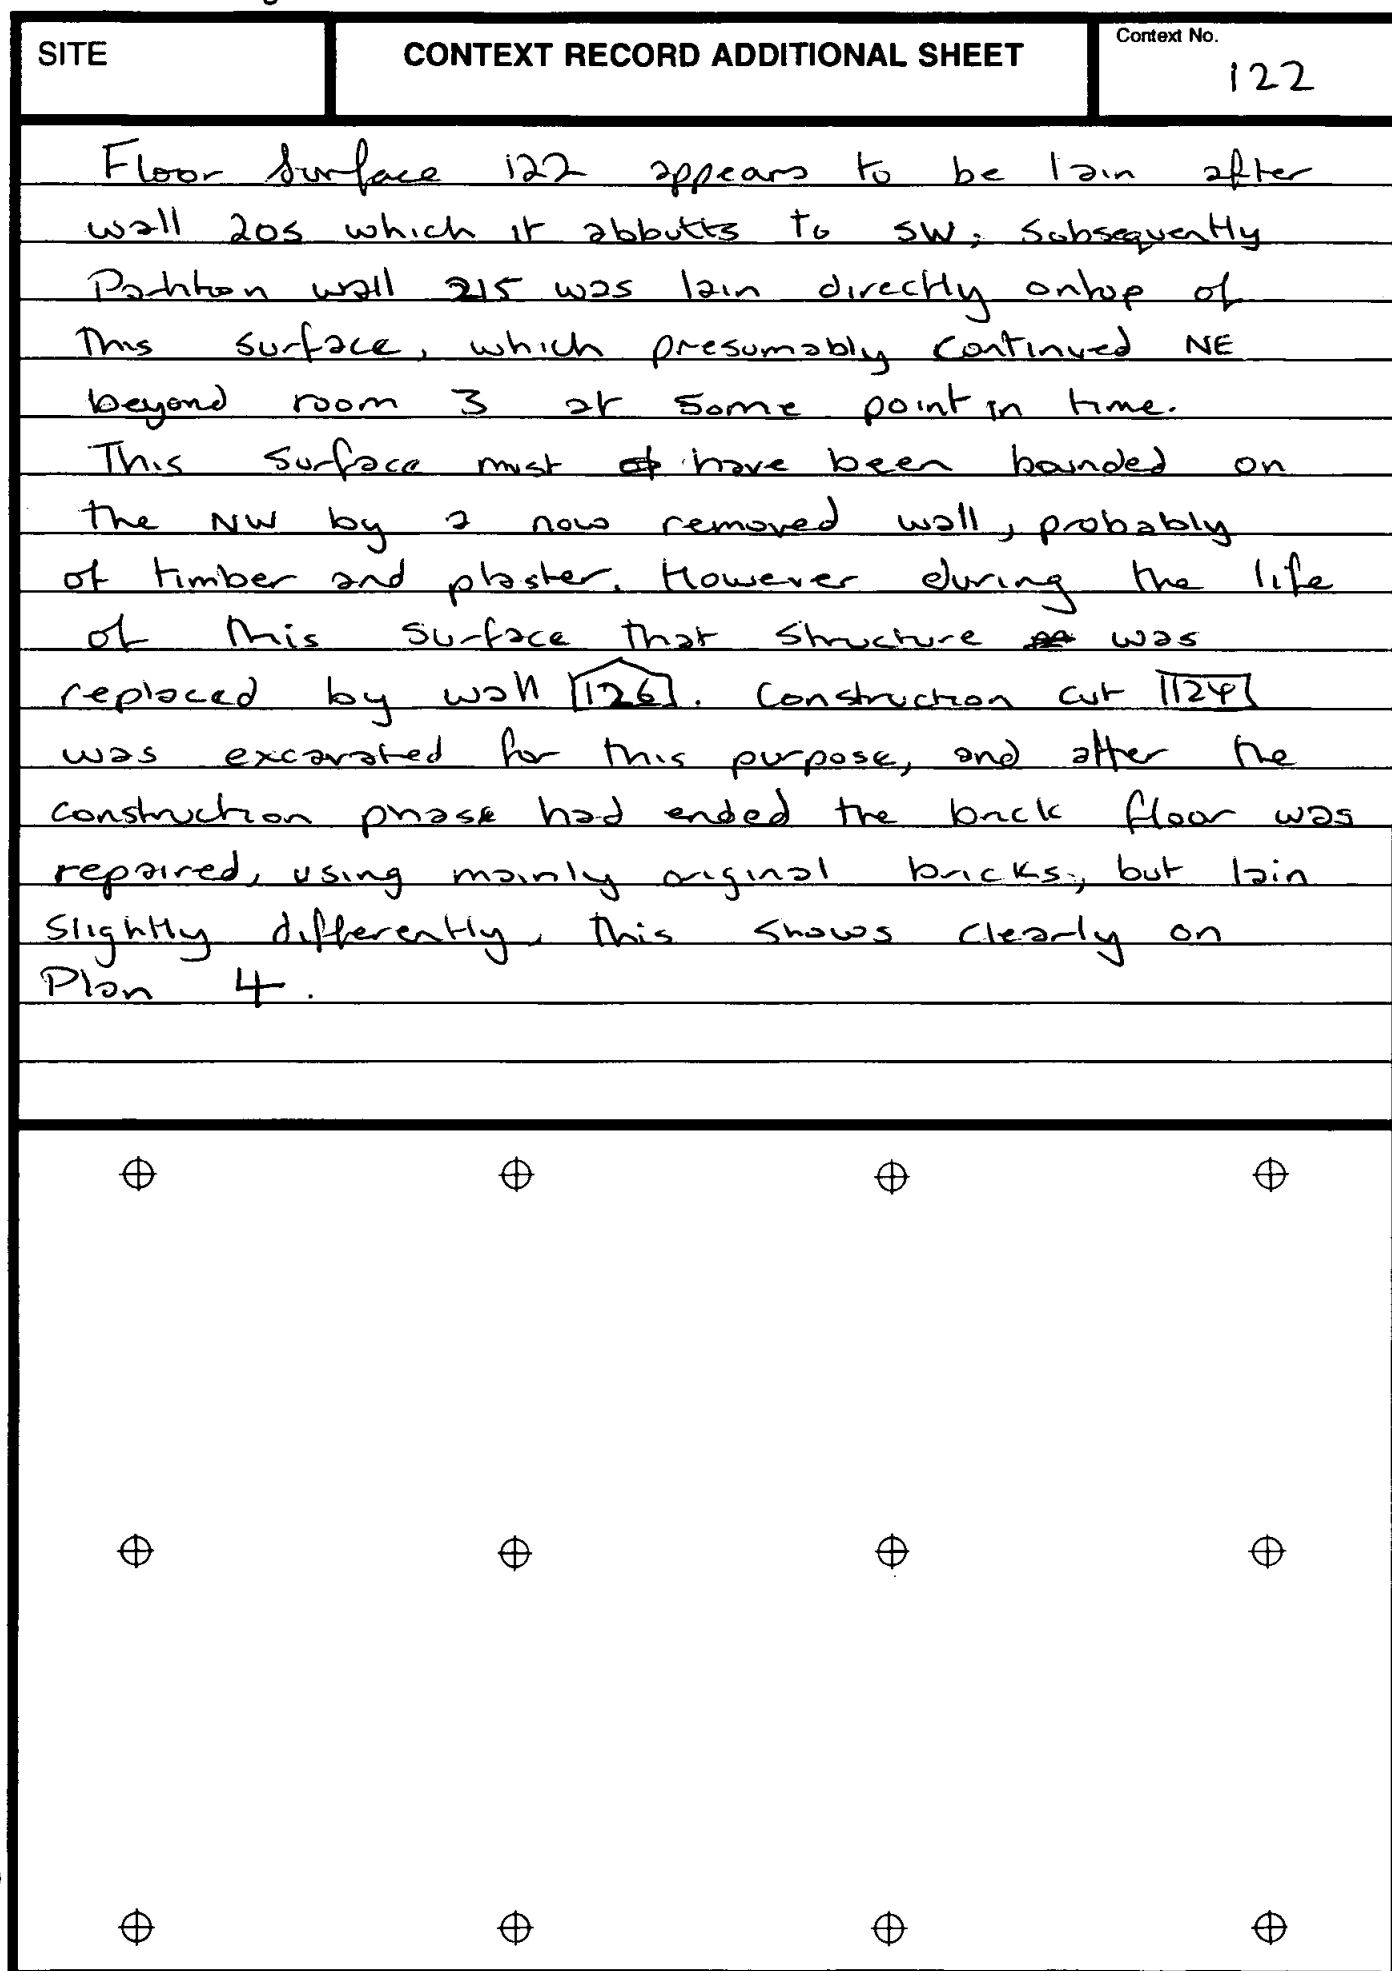 SITE
CONTEXT RECORD ADDITIONAL SHEET
Context No.
122
Floor Surface 122 appears to be lain after
wall 205 which it abbutts to SW; Subsequently
Partition wall 215 was lain directly ontop of
This surface, which presumably continued NE
beyond room 3 at some point in time.
This surface must have been bounded on
the NW by a now removed wall, probably
of timber and plaster. However during the life
of this surface that structure was
replaced by wall 126. Construction cut 124
was excavated for this purpose, and after the
construction phase had ended the brick floor was
repaired, using mainly original bricks, but lain
slightly differently, this shows clearly on
Plan 4.